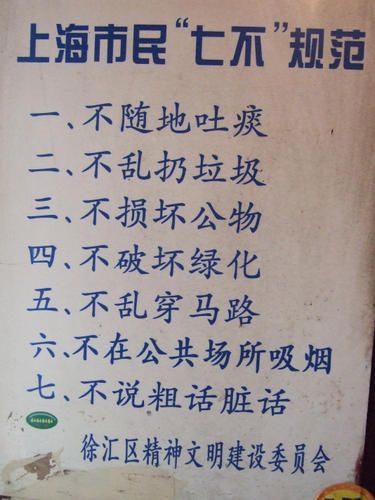 上海市民“七不”规范
一、不随地吐痰
二、不乱扔垃圾
三、不损坏公物
四、不破坏绿化
五、不乱穿马路
六、不在公共场所吸烟
七、不说粗话脏话
徐汇区精神文明建设委员会